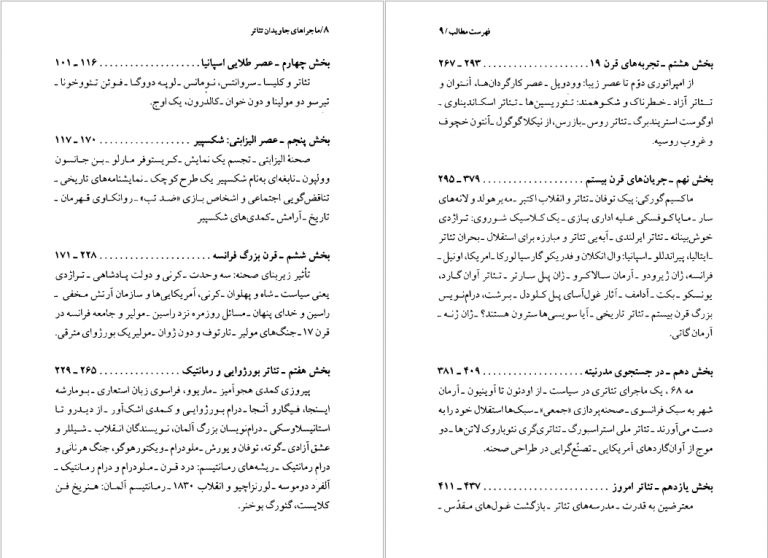 ۸/ماجراهای جاویدان تئاتر
بخش چهارم ـ عصر طلایی اسپانیا ................ ۱۱۶ ـ ۱۰۱
تئاتر و کلیسا ـ سروانتس، نومانس ـ لوپه دووگا ـ فوئن ته‌اووخونا ـ
تیرسو دو مولینا و دون خوان ـ کالدرون، یک اوج.
بخش پنجم ـ عصر الیزابتی: شکسپیر ................ ۱۷۰ ـ ۱۱۷
صحنهٔ الیزابتی ـ تجسم یک نمایش ـ کریستوفر مارلو ـ بن جانسون
وولپون ـ نابغه‌ای به‌نام شکسپیر یک طرح کوچک ـ نمایشنامه‌های تاریخی ـ
تناقض‌گویی اجتماعی و اشخاص بازی «ضد تب» ـ روانکاوی قهرمان ـ
تاریخ ـ آرامش ـ کمدی‌های شکسپیر
بخش ششم ـ قرن بزرگ فرانسه ................ ۲۲۸ ـ ۱۷۱
تأثیر زیربنای صحنه: سه وحدت ـ کرنی و دولت پادشاهی ـ تراژدی
یعنی سیاست ـ شاه و پهلوان ـ کرنی، آمریکایی‌ها و سازمان آرتش مخفی ـ
راسین و خدای پنهان ـ مسائل روزمره نزد راسین ـ مولیر و جامعه فرانسه در
قرن ۱۷ ـ جنگ‌های مولیر ـ تارتوف و دون ژوان ـ مولیر یک بورژوای مترقی.
بخش هفتم ـ تئاتر بورژوایی و رمانتیک ................ ۲۶۵ ـ ۲۲۹
پیروزی کمدی هجوآمیز ـ ماریوو، فراسوی زبان استعاری ـ بومارشه
اینجا، فیگارو آنجا ـ درام بورژوایی و کمدی اشک‌آور ـ از دیدرو تا
استانیسلاوسکی ـ درام‌نویسان بزرگ آلمان، نویسندگان انقلاب ـ شیللر و
عشق آزادی ـ گوته، توفان و یورش ـ ملودرام ـ ویکتورهوگو، جنگ هرنانی و
درام رمانتیک ـ ریشه‌های رمانتیسم: درد قرن ـ ملودرام و درام رمانتیک ـ
آلفرد دوموسه ـ لورنزاچیو و انقلاب ۱۸۳۰ ـ رمانتیسم آلمان: هنریخ فن
کلایست، گئورگ بوخنر.
فهرست مطالب/ ۹
بخش هشتم ـ تجربه‌های قرن ۱۹ ................ ۲۹۳ ـ ۲۶۷
از امپراتوری دوّم تا عصر زیبا: وودویل ـ عصر کارگردان‌ها، آنتوان و
تئاتر آزاد ـ خطرناک و شکوهمند: تئوریسین‌ها ـ تئاتر اسکاندیناوی ـ
اوگوست استریندبرگ ـ تئاتر روس ـ بازرس، از نیکلاگوگول ـ آنتون خچوف
و غروب روسیه.
بخش نهم ـ جریان‌های قرن بیستم ................ ۳۷۹ ـ ۲۹۵
ماکسیم گورکی: پیک توفان ـ تئاتر و انقلاب اکتبر ـ مه‌یرهولد و لانه‌های
سار ـ مایاکوفسکی علیه اداری بازی ـ یک کلاسیک شوروی: تراژدی
خوش‌بینانه ـ تئاتر ایرلندی ـ آبه‌یی تئاتر و مبارزه برای استقلال ـ بحران تئاتر
ایتالیا، پیراندللو ـ اسپانیا: وال انکلان و فدریکو گارسیا لورکا ـ امریکا، اونیل ـ
فرانسه، ژان ژیرودو ـ آرمان سالاکرو ـ ژان پل سارتر ـ تئاتر آوان گارد،
یونسکو ـ بکت ـ آدامف ـ آثار غول‌آسای پل کلودل ـ برشت، درام‌نویس
بزرگ قرن بیستم ـ تئاتر تاریخی ـ آیا سویسی‌ها سترون هستند؟ ـ ژان ژنه ـ
آرمان گاتی.
بخش دهم ـ در جستجوی مدرنیته ................ ۴۰۹ ـ ۳۸۱
مه ۶۸، یک ماجرای تئاتری در سیاست ـ از اودئون تا آوینیون ـ آرمان
شهر به سبک فرانسوی ـ صحنه‌پردازی «جمعی» ـ سبک‌ها استقلال خود را به
دست می‌آورند ـ تئاتر ملی استراسبورگ ـ تئاتری‌گری نئوباروک لاتن‌ها ـ دو
موج از آوان‌گاردهای آمریکایی ـ تصنّع‌گرایی در طراحی صحنه.
بخش یازدهم ـ تئاتر امروز ................ ۴۳۷ ـ ۴۱۱
معترضین به قدرت ـ مدرسه‌های تئاتر ـ بازگشت غول‌های مقدّس ـ